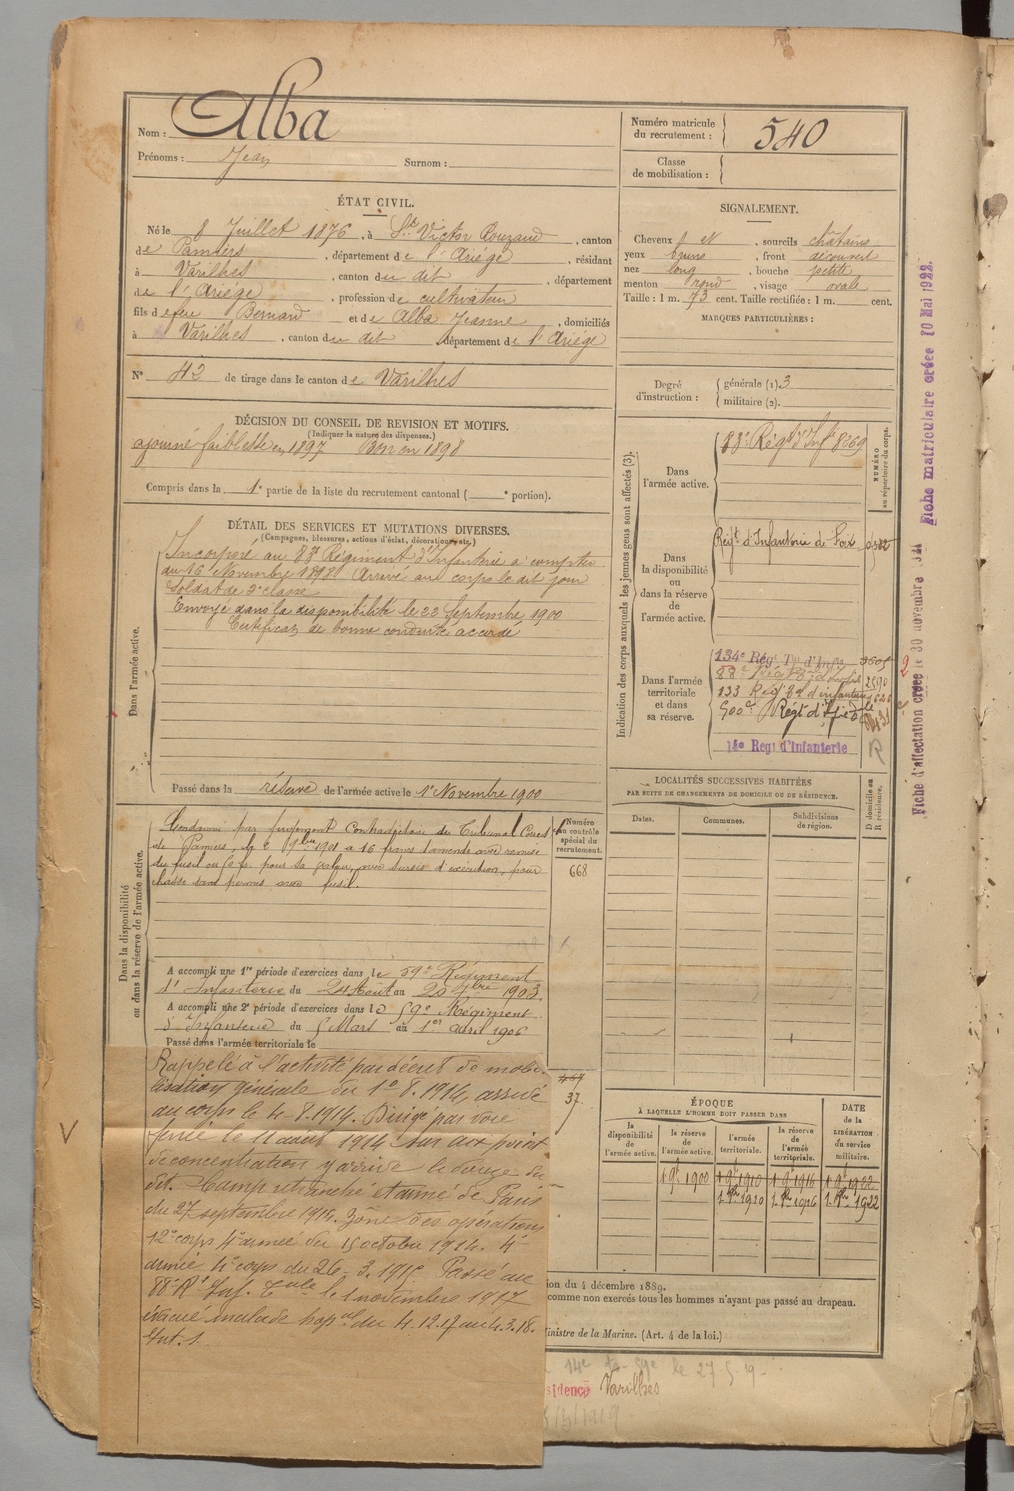 Nom : Alba
Prénoms : Jean Surnom :
Numéro matricule du recrutement : 540
Classe de mobilisation :
ÉTAT CIVIL.
Né le 8 Juillet 1876, à St Victor Rouzaud, canton
de Pamiers, département de l'Ariège, résidant
à Varilhes, canton du dit, département
de l'Ariège, profession de cultivateur
fils de feu Bernard et de Alba Jeanne, domiciliés
à Varilhes, canton du dit département de l'Ariège
N° 42 de tirage dans le canton de Varilhes
SIGNALEMENT.
Cheveux et, sourcils châtains
yeux bruns, front découvert
nez long, bouche petite
menton rond, visage ovale
Taille : 1 m. 73 cent. Taille rectifiée : 1 m. cent.
MARQUES PARTICULIÈRES :
Degré d'instruction : générale (1) 3
militaire (2).
DÉCISION DU CONSEIL DE REVISION ET MOTIFS.
(Indiquer la nature des dispenses.)
ajourné faiblesse en 1897 Bon en 1898
Compris dans la 1e partie de la liste du recrutement cantonal ( e portion).
DÉTAIL DES SERVICES ET MUTATIONS DIVERSES.
(Campagnes, blessures, actions d'éclat, décorations, etc.)
Dans l'armée active.
Incorporé au 83e Régiment d'Infanterie à compter
du 16 Novembre 1898. Arrivé au corps le dit jour
Soldat de 2e classe
Envoyé dans la disponibilité le 22 Septembre 1900
Certificat de bonne conduite accordé
Passé dans la réserve de l'armée active le 1er Novembre 1900
Indication des corps auxquels les jeunes gens sont affectés (3).
NUMÉRO au répertoire du corps.
Dans l'armée active.
83e Régt d'Infie 8269
Dans la disponibilité ou dans la réserve de l'armée active.
Régt d'Infanterie de Foix
Dans l'armée territoriale et dans sa réserve.
134e Rég Tal d'Infie
88e
133 Rég d'infanterie
500e Régt d'
14e Regt d'Infanterie
R
Fiche d'affectation créée le 30 novembre
Fiche matriculaire créée 10 Mai 1922.
LOCALITÉS SUCCESSIVES HABITÉES
PAR SUITE DE CHANGEMENTS DE DOMICILE OU DE RÉSIDENCE.
Dates. Communes. Subdivisions de région. D domicile ou R résidence.
Dans la disponibilité ou dans la réserve de l'armée active.
Numéro au contrôle spécial du recrutement.
668
Condamné par jugement contradictoire du Tribunal Correct
de Pamiers, le 2 9bre 1901 à 16 francs d'amende avec remise
du fusil ou 50 fr. pour sa valeur, avec sursis d'exécution, pour
chasse sans permis avec fusil.
A accompli une 1re période d'exercices dans le 59e Régiment
d'Infanterie du 24 Août au 20 7bre 1903.
A accompli une 2e période d'exercices dans le 59e Régiment
d'Infanterie du 5 Mars au 1er avril 1906
Passé dans l'armée territoriale le
37
Rappelé à l'activité par décret de mobi-
lisation générale du 1er 8. 1914, arrivé
au corps le 4-8-1914. Dirigé par voie
ferrée le 11 août 1914 sur aux point
de concentration y arrivé le douze du
dit. Camp retranché et armé de Paris
du 27 septembre 1914. Zône des opérations
12e corps 4e armée du 15 octobre 1914. 4e
armée 4e corps du 26-3-1915 Passé au
88e Rt Inf. Tale le 1 novembre 1917
évacué malade hopal du 4.12.17 au 4.3.18.
Int. 1.
ÉPOQUE
À LAQUELLE L'HOMME DOIT PASSER DANS
la disponibilité de l'armée active. la réserve de l'armée active. l'armée territoriale. la réserve de l'armée territoriale. DATE de la LIBÉRATION du service militaire.
1 9e 1900 1 9e 1910 1 9e 1916 1 9e 1922
1. 8bre 1910 1. 8bre 1916 1. 8bre 1922
ion du 4 décembre 1889.
comme non exercés tous les hommes n'ayant pas passé au drapeau.
inistre de la Marine. (Art. 4 de la loi.)
14e le 27-5-19-
sidence Varilhes